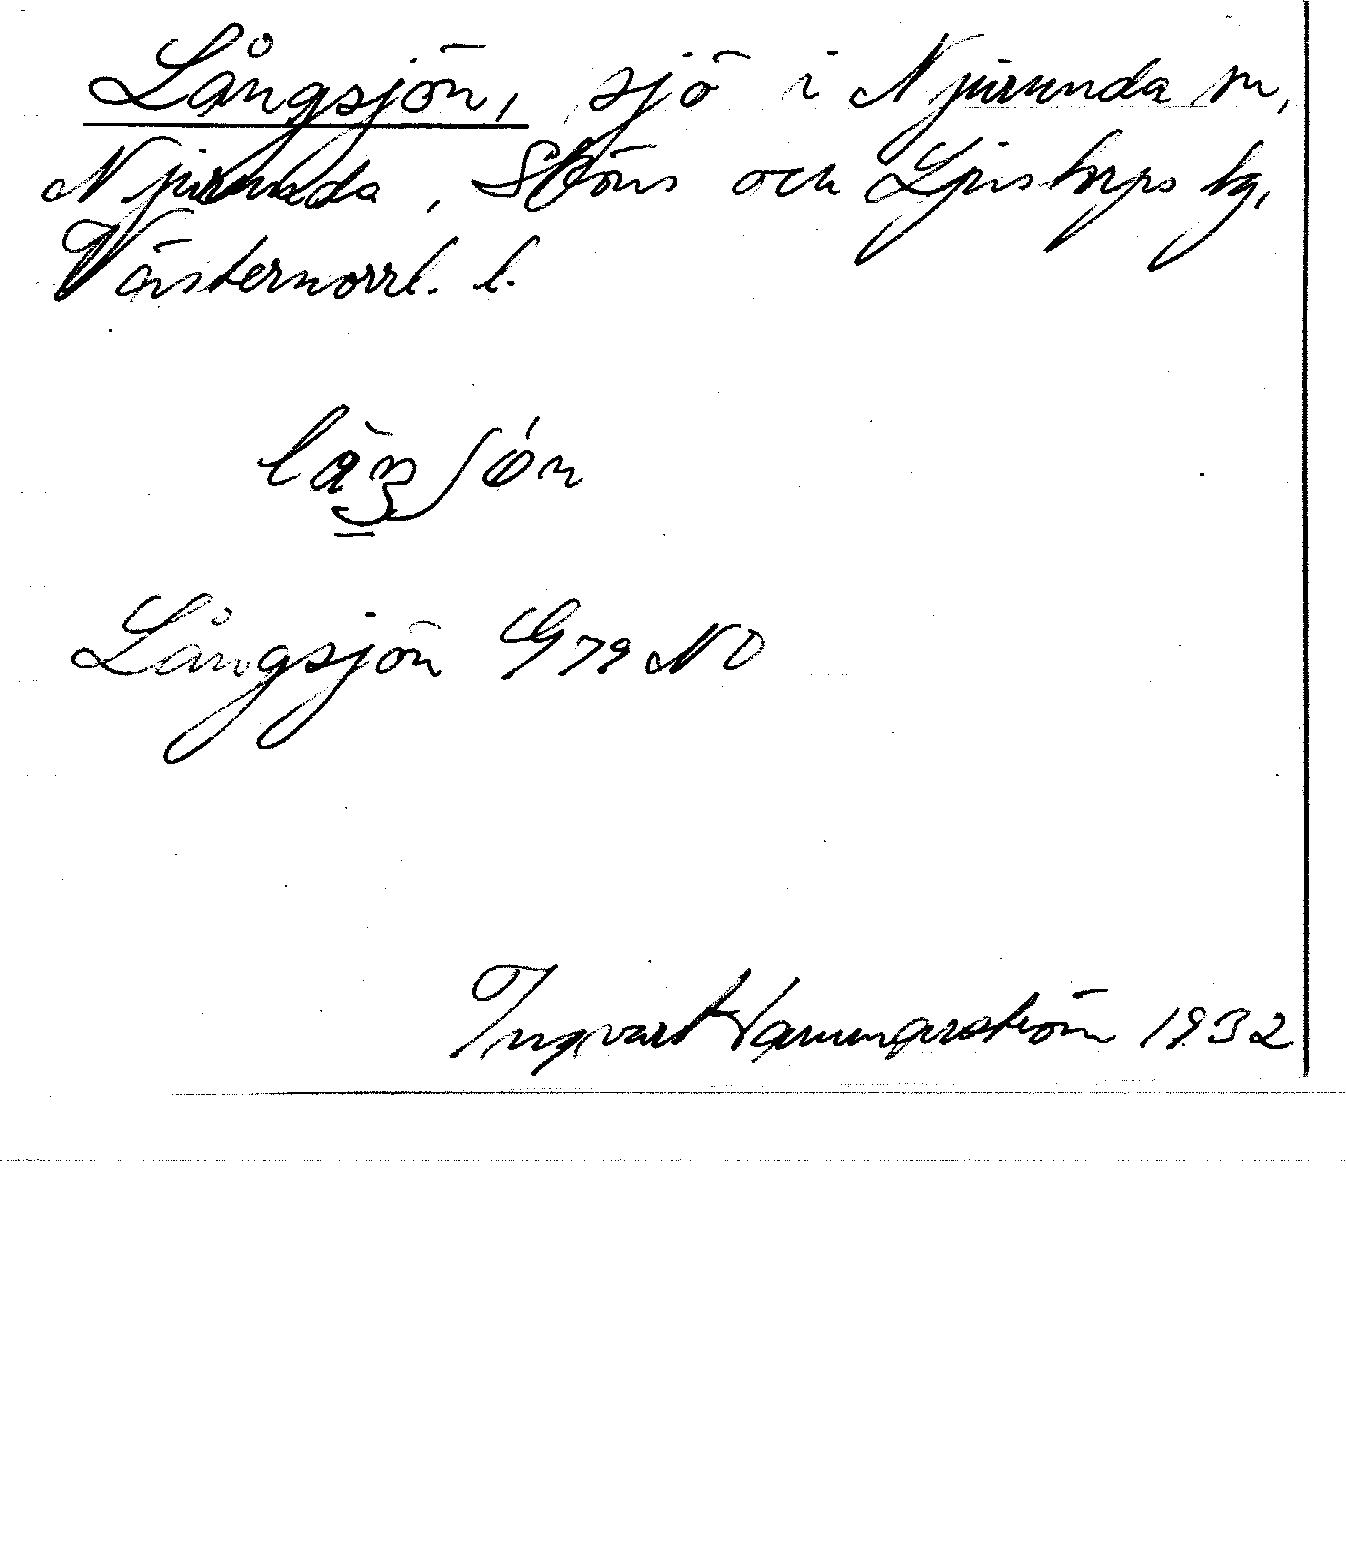 Långsjön, sjö i Njurunda sn,
Njurunda, Sköns och Ljustorps tg,
Västernorrl. l.
Långsjön G79 NO
Ingvart Hammarström 1932